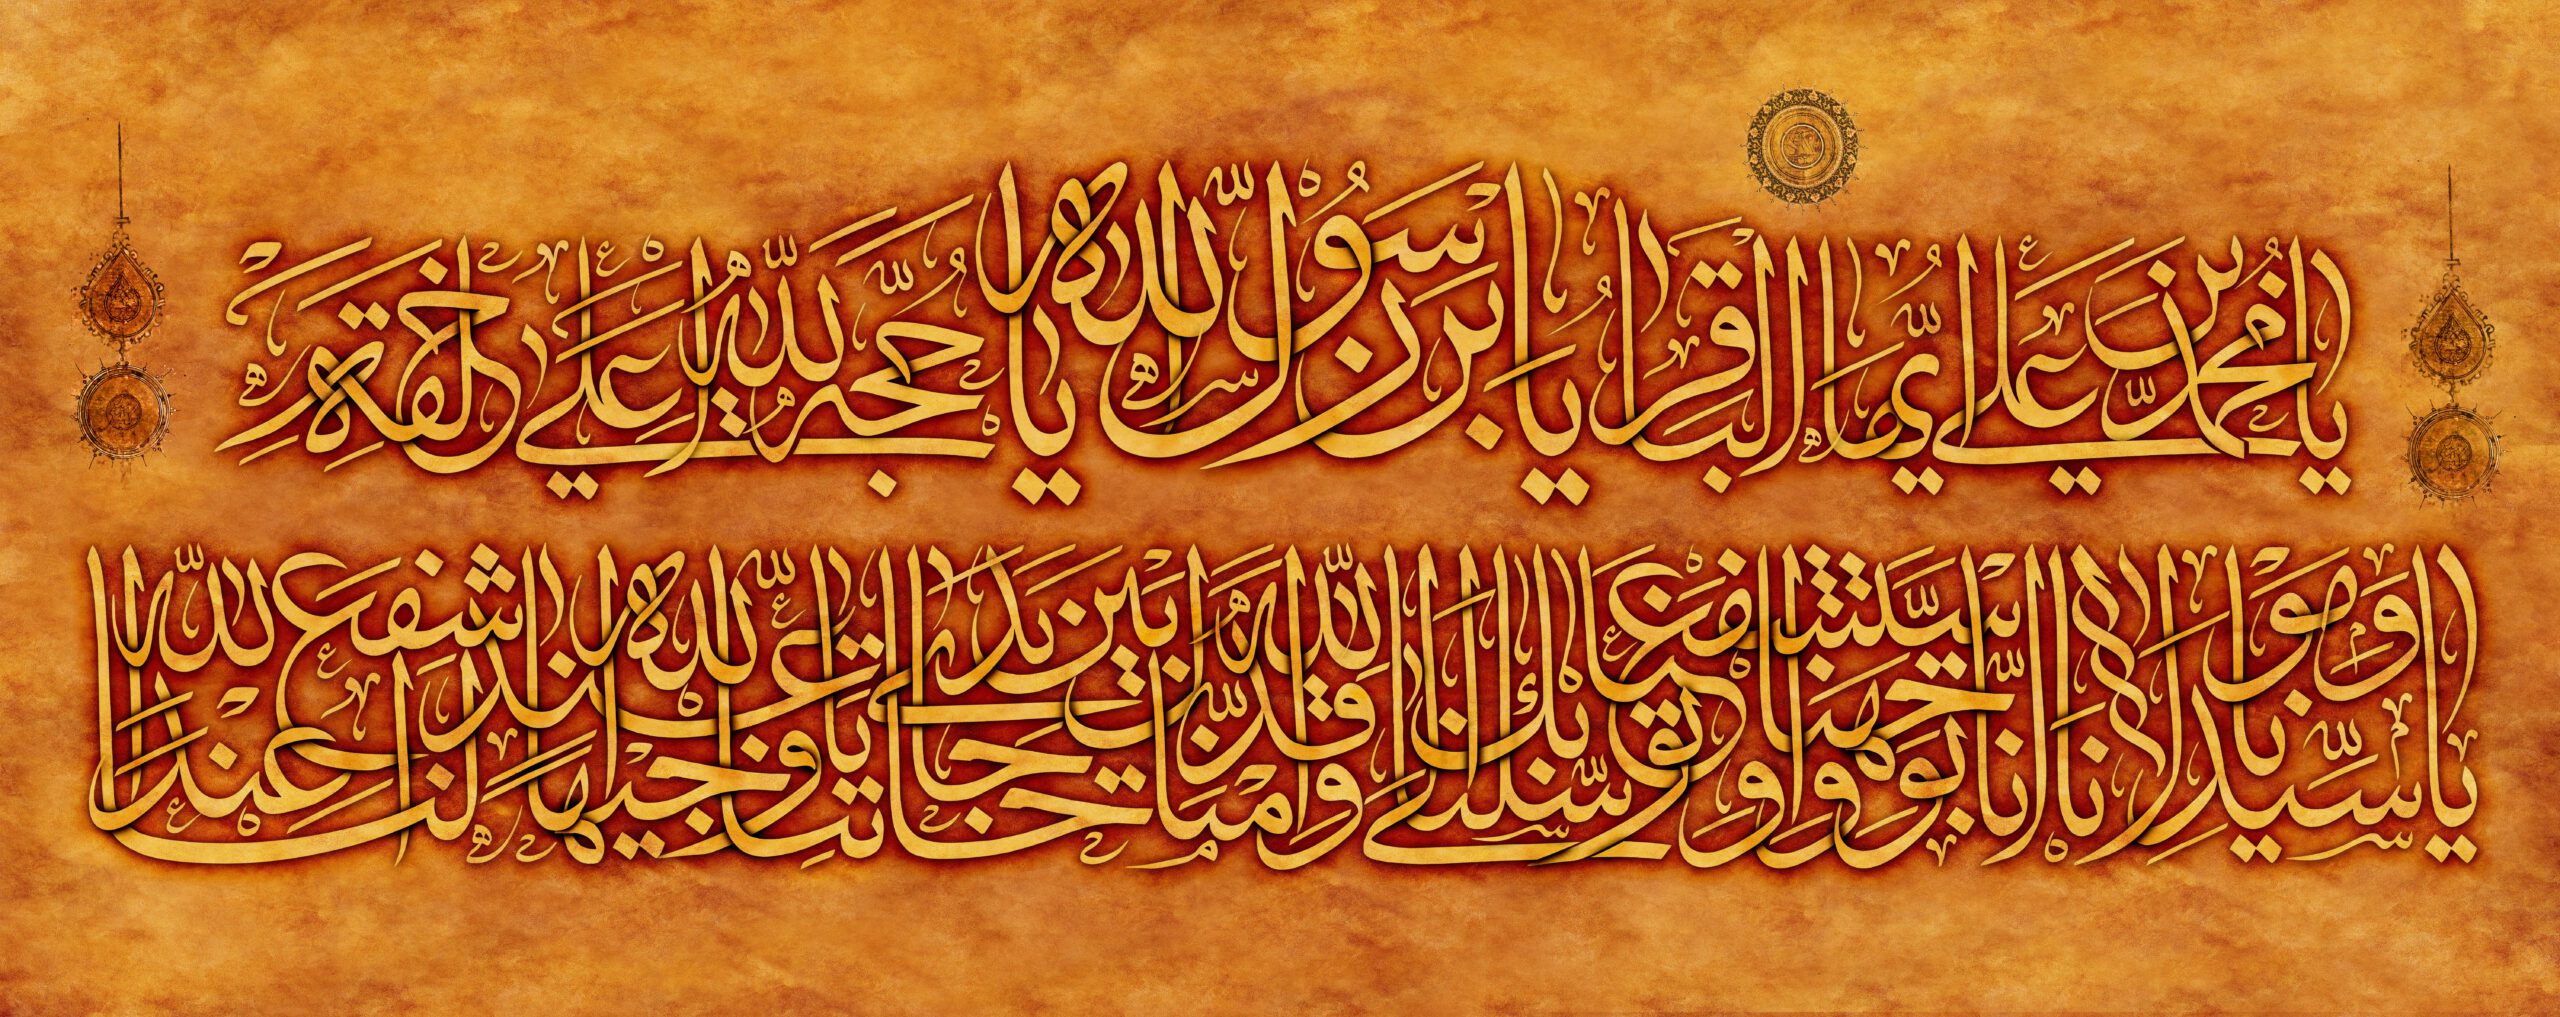 يا محمد بن علي أيها الباقر يا ابن رسول الله يا حجة الله على خلقه
يا سيدنا ومولانا إنا توجهنا واستشفعنا وتوسلنا بك إلى الله وقدمناك بين يدي حاجاتنا يا وجيها عند الله اشفع لنا عند الله